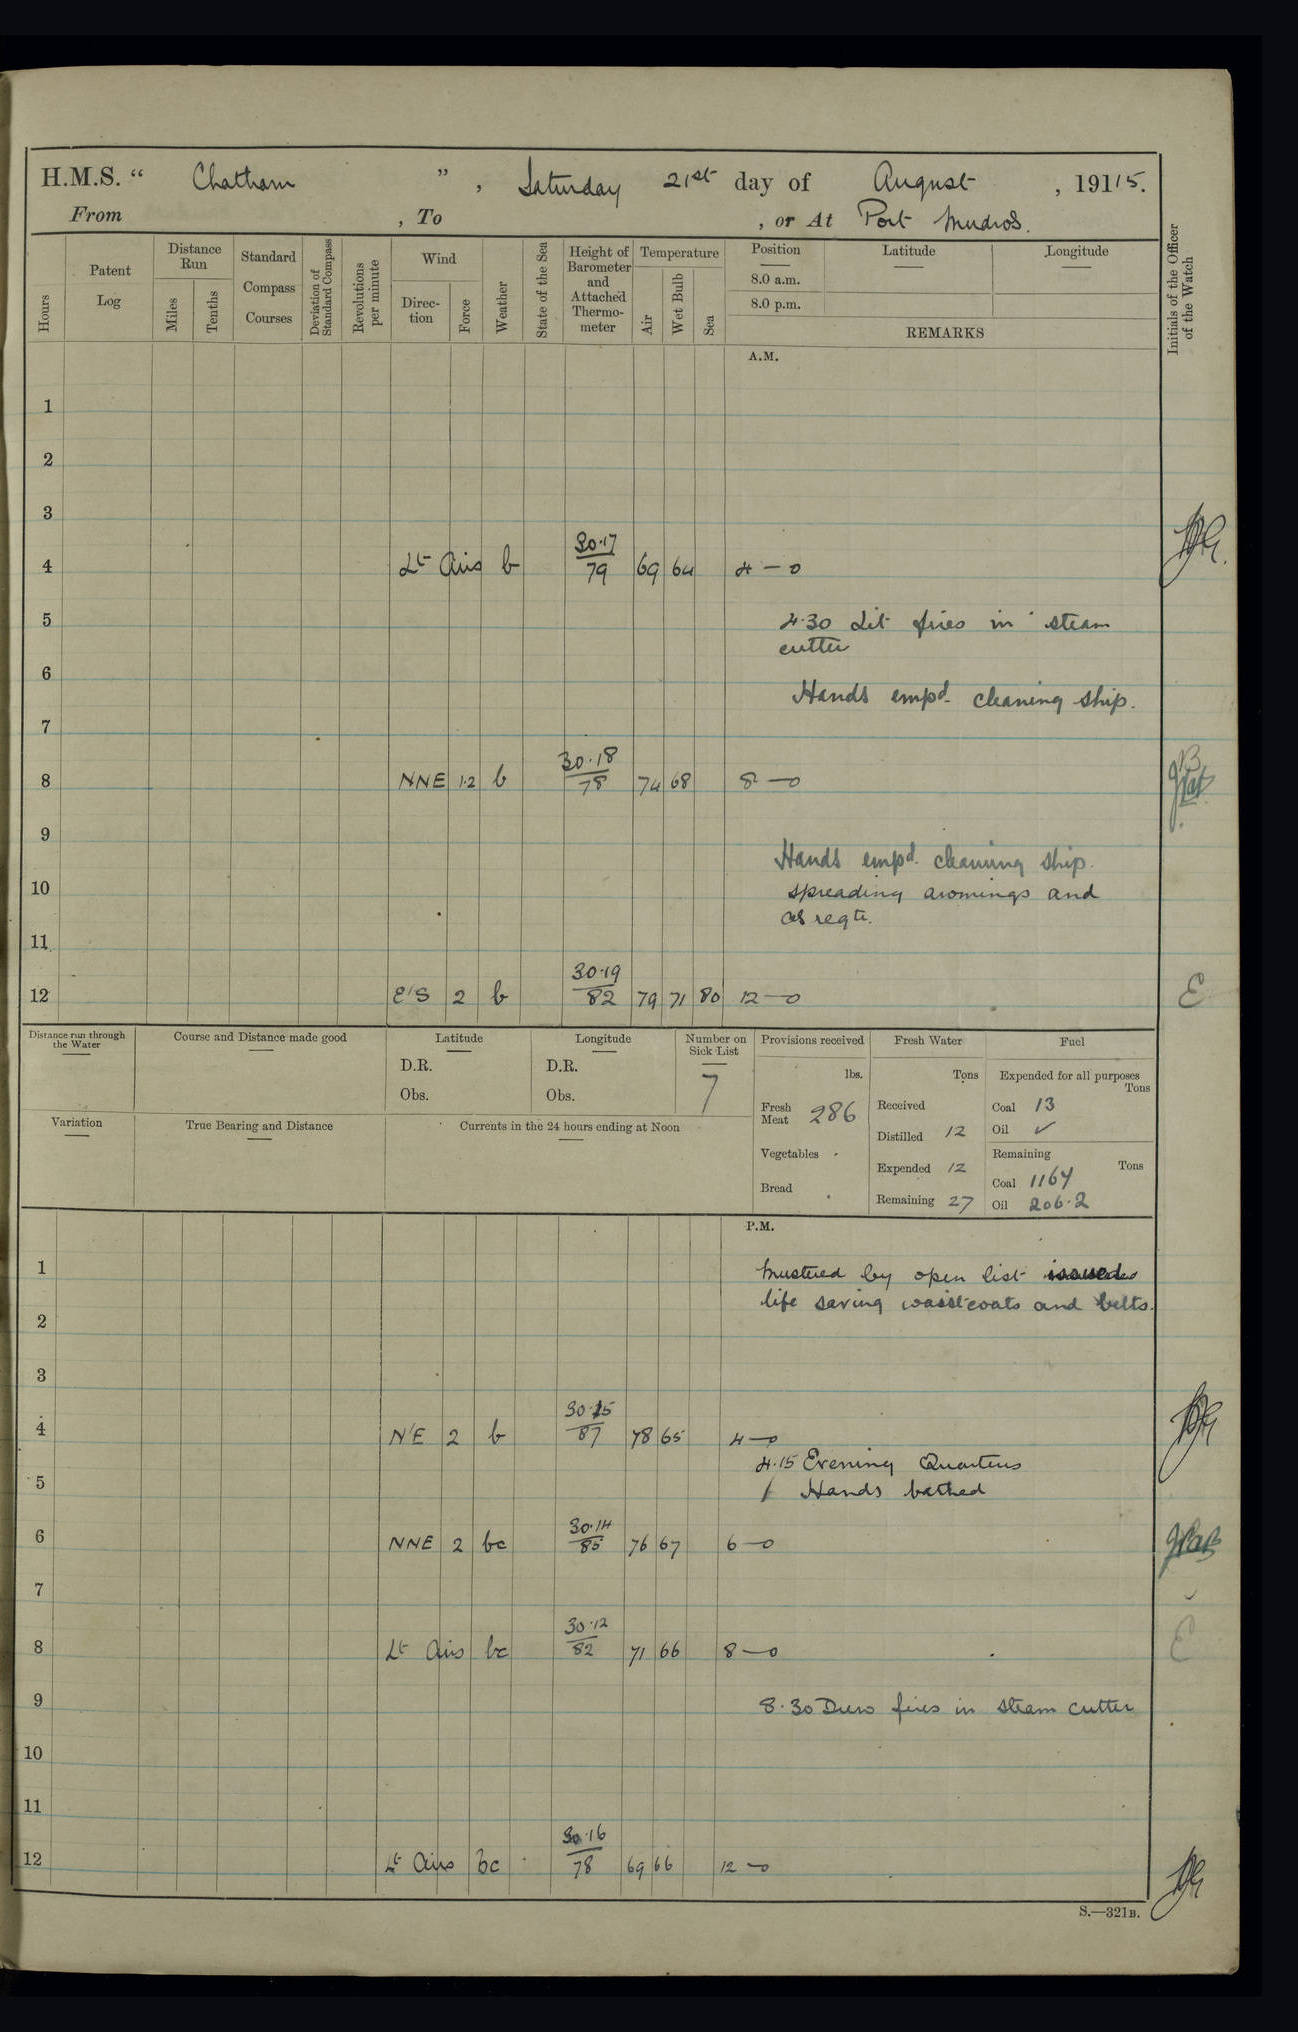 H.M.S. “ Chatham ” , Saturday 21st day of August , 19115.
From , To , or At Port Mudros.
Hours
Patent Log
Distance Run
Miles
Tenths
Standard Compass Courses
Deviation of Standard Compass
Revolutions per minute
Wind
Direc-tion
Force
Weather
State of the Sea
Height of Barometer and Attached Thermo-meter
Temperature
Air
Wet Bulb
Sea
Position
8.0 a.m.
8.0 p.m.
Latitude
Longitude
REMARKS
Initials of the Officer of the Watch
A.M.
1
2
3
30·17
4 Lt Airs b 79 69 64 4 — 0
5 4·30 Lit fires in steam
cutter
6
Hands empd. cleaning ship.
7
30·18
8 NNE 1·2 b 78 74 68 8 — 0
9
Hands empd. cleaning ship.
10 spreading awnings and
as reqte.
11
30·19
12 E'S 2 b 82 79 71 80 12 — 0 E
Distance run through the Water
Course and Distance made good
Latitude
D.R.
Obs.
Longitude
D.R.
Obs.
Number on Sick List
7
Provisions received
lbs.
Fresh Meat 286
Vegetables
Bread
Fresh Water
Tons
Received
Distilled 12
Expended 12
Remaining 27
Fuel
Expended for all purposes
Tons
Coal 13
Oil ✓
Remaining
Tons
Coal 1164
Oil 206·2
Variation
True Bearing and Distance
Currents in the 24 hours ending at Noon
P.M.
1 Mustered by open list issued
life saving waistcoats and belts.
2
3
30·15
4 N'E 2 b 87 78 65 4 — 0
4·15 Evening Quarters
5 Hands bathed
30·14
6 NNE 2 bc 85 76 67 6 — 0
7
30·12
8 Lt Airs bc 82 71 66 8 — 0 E
9 8·30 Drew fires in steam cutter
10
11
30·16
12 Lt Airs bc 78 69 66 12 — 0
S.—321B.